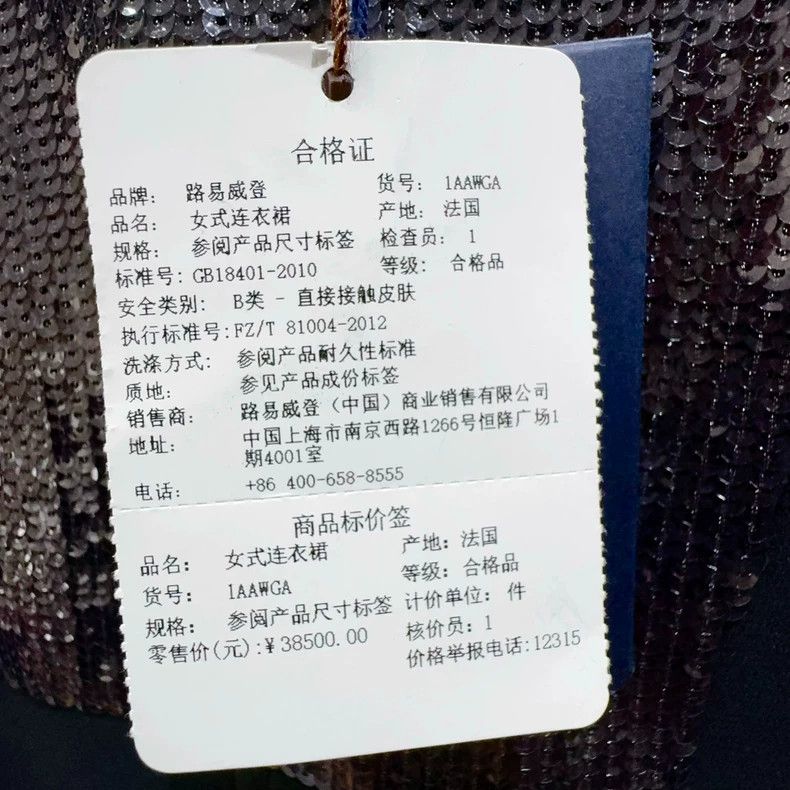 合格证
品牌: 路易威登 货号: 1AAWGA
品名: 女式连衣裙 产地: 法国
规格: 参阅产品尺寸标签 检查员: 1
标准号: GB18401-2010 等级: 合格品
安全类别: B类 - 直接接触皮肤
执行标准号:FZ/T 81004-2012
洗涤方式: 参阅产品耐久性标准
质地: 参见产品成份标签
销售商: 路易威登（中国）商业销售有限公司
地址: 中国上海市南京西路1266号恒隆广场1
期4001室
电话: +86 400-658-8555
商品标价签
品名: 女式连衣裙 产地: 法国
货号: 1AAWGA 等级: 合格品
规格: 参阅产品尺寸标签 计价单位: 件
零售价(元):¥38500.00 核价员: 1
价格举报电话:12315